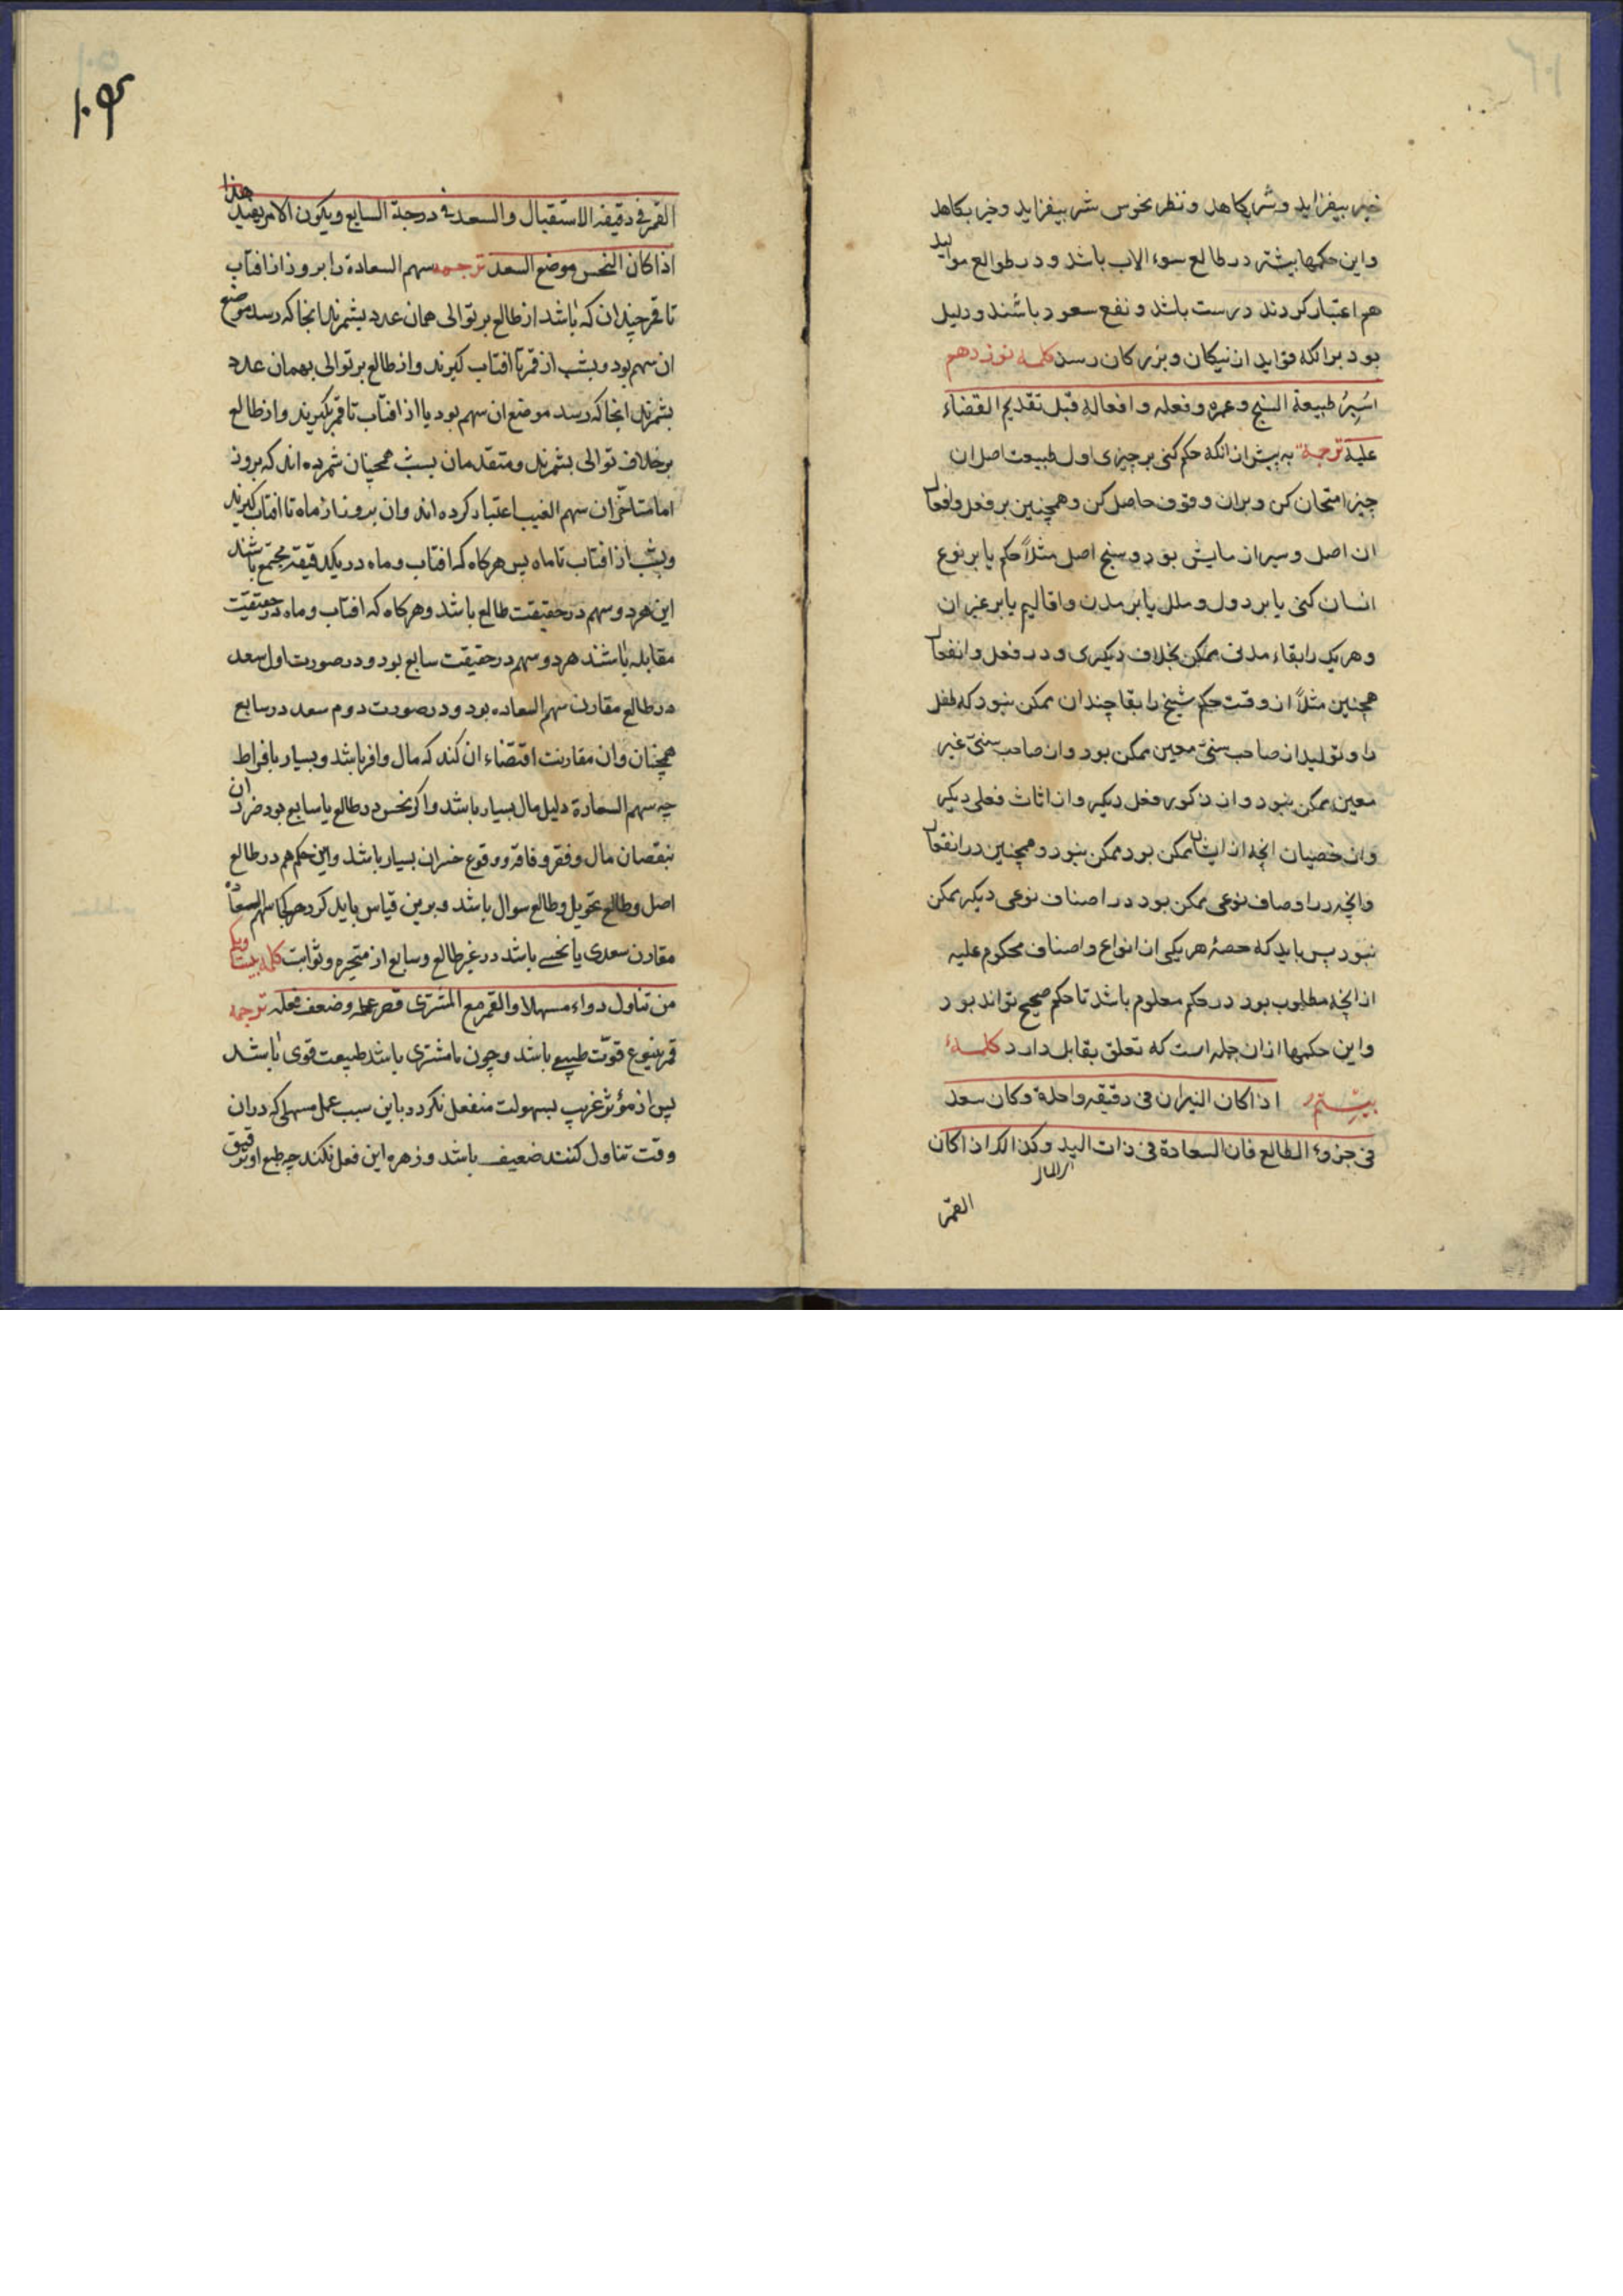 خیر بیفزاید و شر بکاهد و نظر نحوس شر بیفزاید و خیر بکاهد
واین حکمها بیشتر در طالع سوء الاب باشد و در طوالع موالید
هم اعتبار کردند درست باشد و نفع سعود باشند و دلیل
بود برانکه فواید از نیکان و بزرکان رسد کلمه نوزدهم
اسبر طبیعة السنخ وعمره وفعله وافعاله قبل تقدیم القضاء
علیه ترجمة به پیش از انکه حکم کنی بر چیزی اول طبیعت اصل ان
چیز امتحان کن وبران وقوف حاصل کن وهمچنین بر فعل وافعال
ان اصل و سبر ازمایش بود و سنخ اصل مثلاً حکم یا بر نوع
انسان کنی یا بر دول و ملل یا بر مدن واقالیم یا بر غیر ان
وهر یک را بقاء مدتی ممکن بخلاف دیکری و در فعل وانفعال
همچنین مثلاً از وقت حکم شیخ را بقا چندان ممکن نبود که طفل
را و تولید از صاحب سنّی معین ممکن بود واز صاحب سنّی غیر
معین ممکن نبود واز ذکور فعل دیکر واز اناث فعلی دیکر
واز خصیان انچه از ایشان ممکن بود ممکن نبود وهمچنین در انفعال
وانچه در اوصاف نوعی ممکن بود در اصناف نوعی دیکر ممکن
نبود پس باید که حصهٔ هریکی از انواع واصناف محکوم علیه
از انچه مطلوب بود در حکم معلوم باشد تا حکم صحیح تواند بود
واین حکمها ازان جمله است که تعلق بقابل دارد کلمهٔ
بیستم اذا کان النیران فی دقیقه واحدة وکان سعد
فی جزوء الطالع فان السعادة فی ذات الید وکذالک اذا کان
ای المال
القمر
۱۰۳
القمر فی دقیقه الاستقبال والسعد فی درجة السابع ویکون الامر بضد هذا
اذا کان النحس موضع السعد ترجمه سهم السعادة را بروز از افتاب
تا قمر چندان که باشد از طالع بر توالی همان عدد بشمرند انجا که رسد موضع
ان سهم بود و بشب از قمر تا افتاب کیرند واز طالع بر توالی بهمان عدد
بشمرند انجا که رسد موضع ان سهم بود یا از افتاب تا قمر بکیرند واز طالع
بر خلاف توالی بشمرند ومتقدمان بشب همچنان شمرده اند که بروز
اما متاخّران سهم الغیب اعتبار کرده اند وان بروز از ماه تا افتاب کیرند
وبشب از افتاب تا ماه پس هرکاه که افتاب و ماه در یکدقیقه مجتمع باشند
این هر دو سهم در حقیقت طالع باشد وهرکاه که افتاب و ماه در حقیقت
مقابله باشند هر دو سهم در حقیقت سابع بود ودر صورت اول سعد
در طالع مقارن سهم السعاده بود ودر صورت دوم سعد در سابع
همچنان وان مقارنت اقتضاء ان کند که مال وافر باشد وبسیار بافراط
چه سهم السعادة دلیل مال بسیار باشد واکر نحس در طالع یا سابع بود ضرر ان
بنقصان مال وفقر وفاقه ووقوع خسران بسیار باشد واین حکم هم در طالع
اصل وطالع تحویل وطالع سوال باشد وبرین قیاس باید کرد هرکجا سهم السعادة
مقارن سعدی یا نحسی باشد در غیر طالع وسابع از متحیره وثوابت کلمه بیست ویکم
من تناول دواء مسهلا والقمر مع المشتری قصر عمله وضعف فعله ترجمه
قمر ینبوع قوّت طبیعی باشد وچون با مشتری باشد طبیعت قوی باشد
پس از مؤثر غریب بسهولت منفعل نکردد باین سبب عمل مسهلی که دران
وقت تناول کنند ضعیف باشد وزهره این فعل نکند چه طبع او